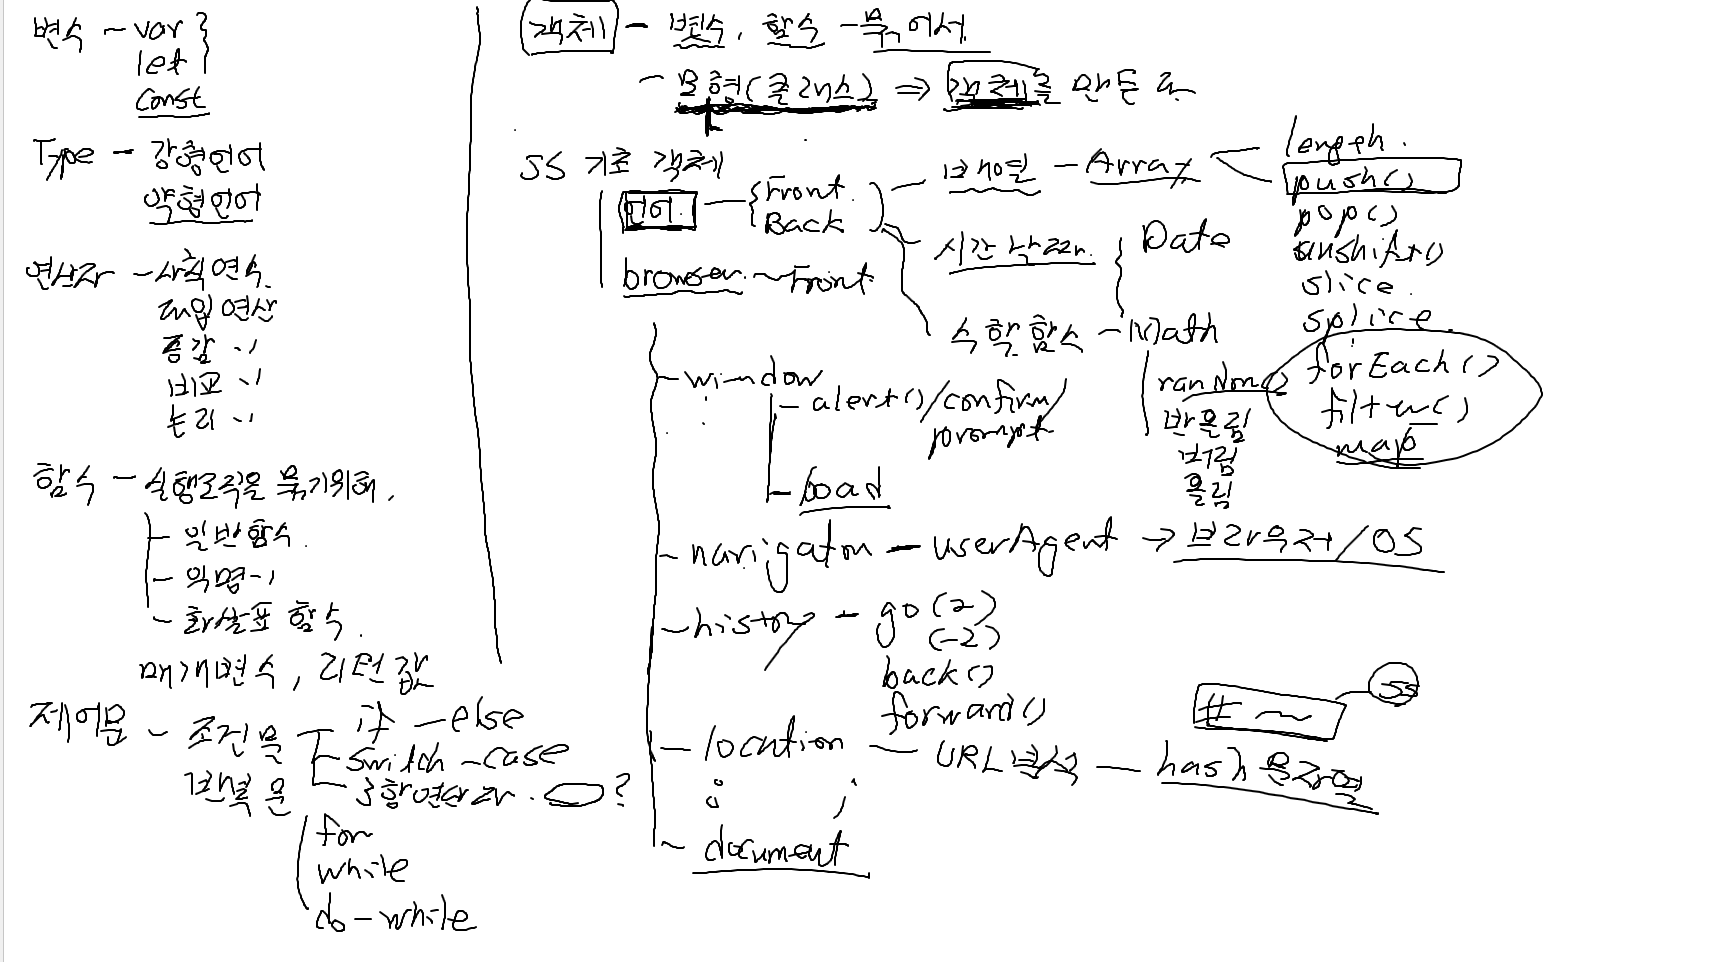 변수 ~ var
let
const
Type - 강형언어
약형언어
연산자 - 사칙연산
대입연산
증감 〃
비교 〃
논리 〃
함수 - 실행로직을 묶기위해,
- 일반함수.
- 익명 〃
- 화살표 함수.
매개변수, 리턴값
제어문 ~ 조건문
if - else
switch - case
3항연산자. ?
반복문
for
while
do - while
객체 - 변수, 함수 - 묶어서
- 모형(클래스) ⇒ 객체를 만든다.
JS 기초 객체
언어. - Front.
Back
browser. ~ Front
배열 - Array
length.
push()
pop()
unshift()
slice.
splice.
forEach()
filter()
map
시간 날짜.
Date
수학 함수 - Math
random()
반올림
버림
올림
- window
- alert() / confirm /
prompt
- load
- navigator - userAgent → 브라우저 / OS
- history - go(2)
(-2)
back()
forward()
- location - URL분석 - hash
# ~
JS
~ document